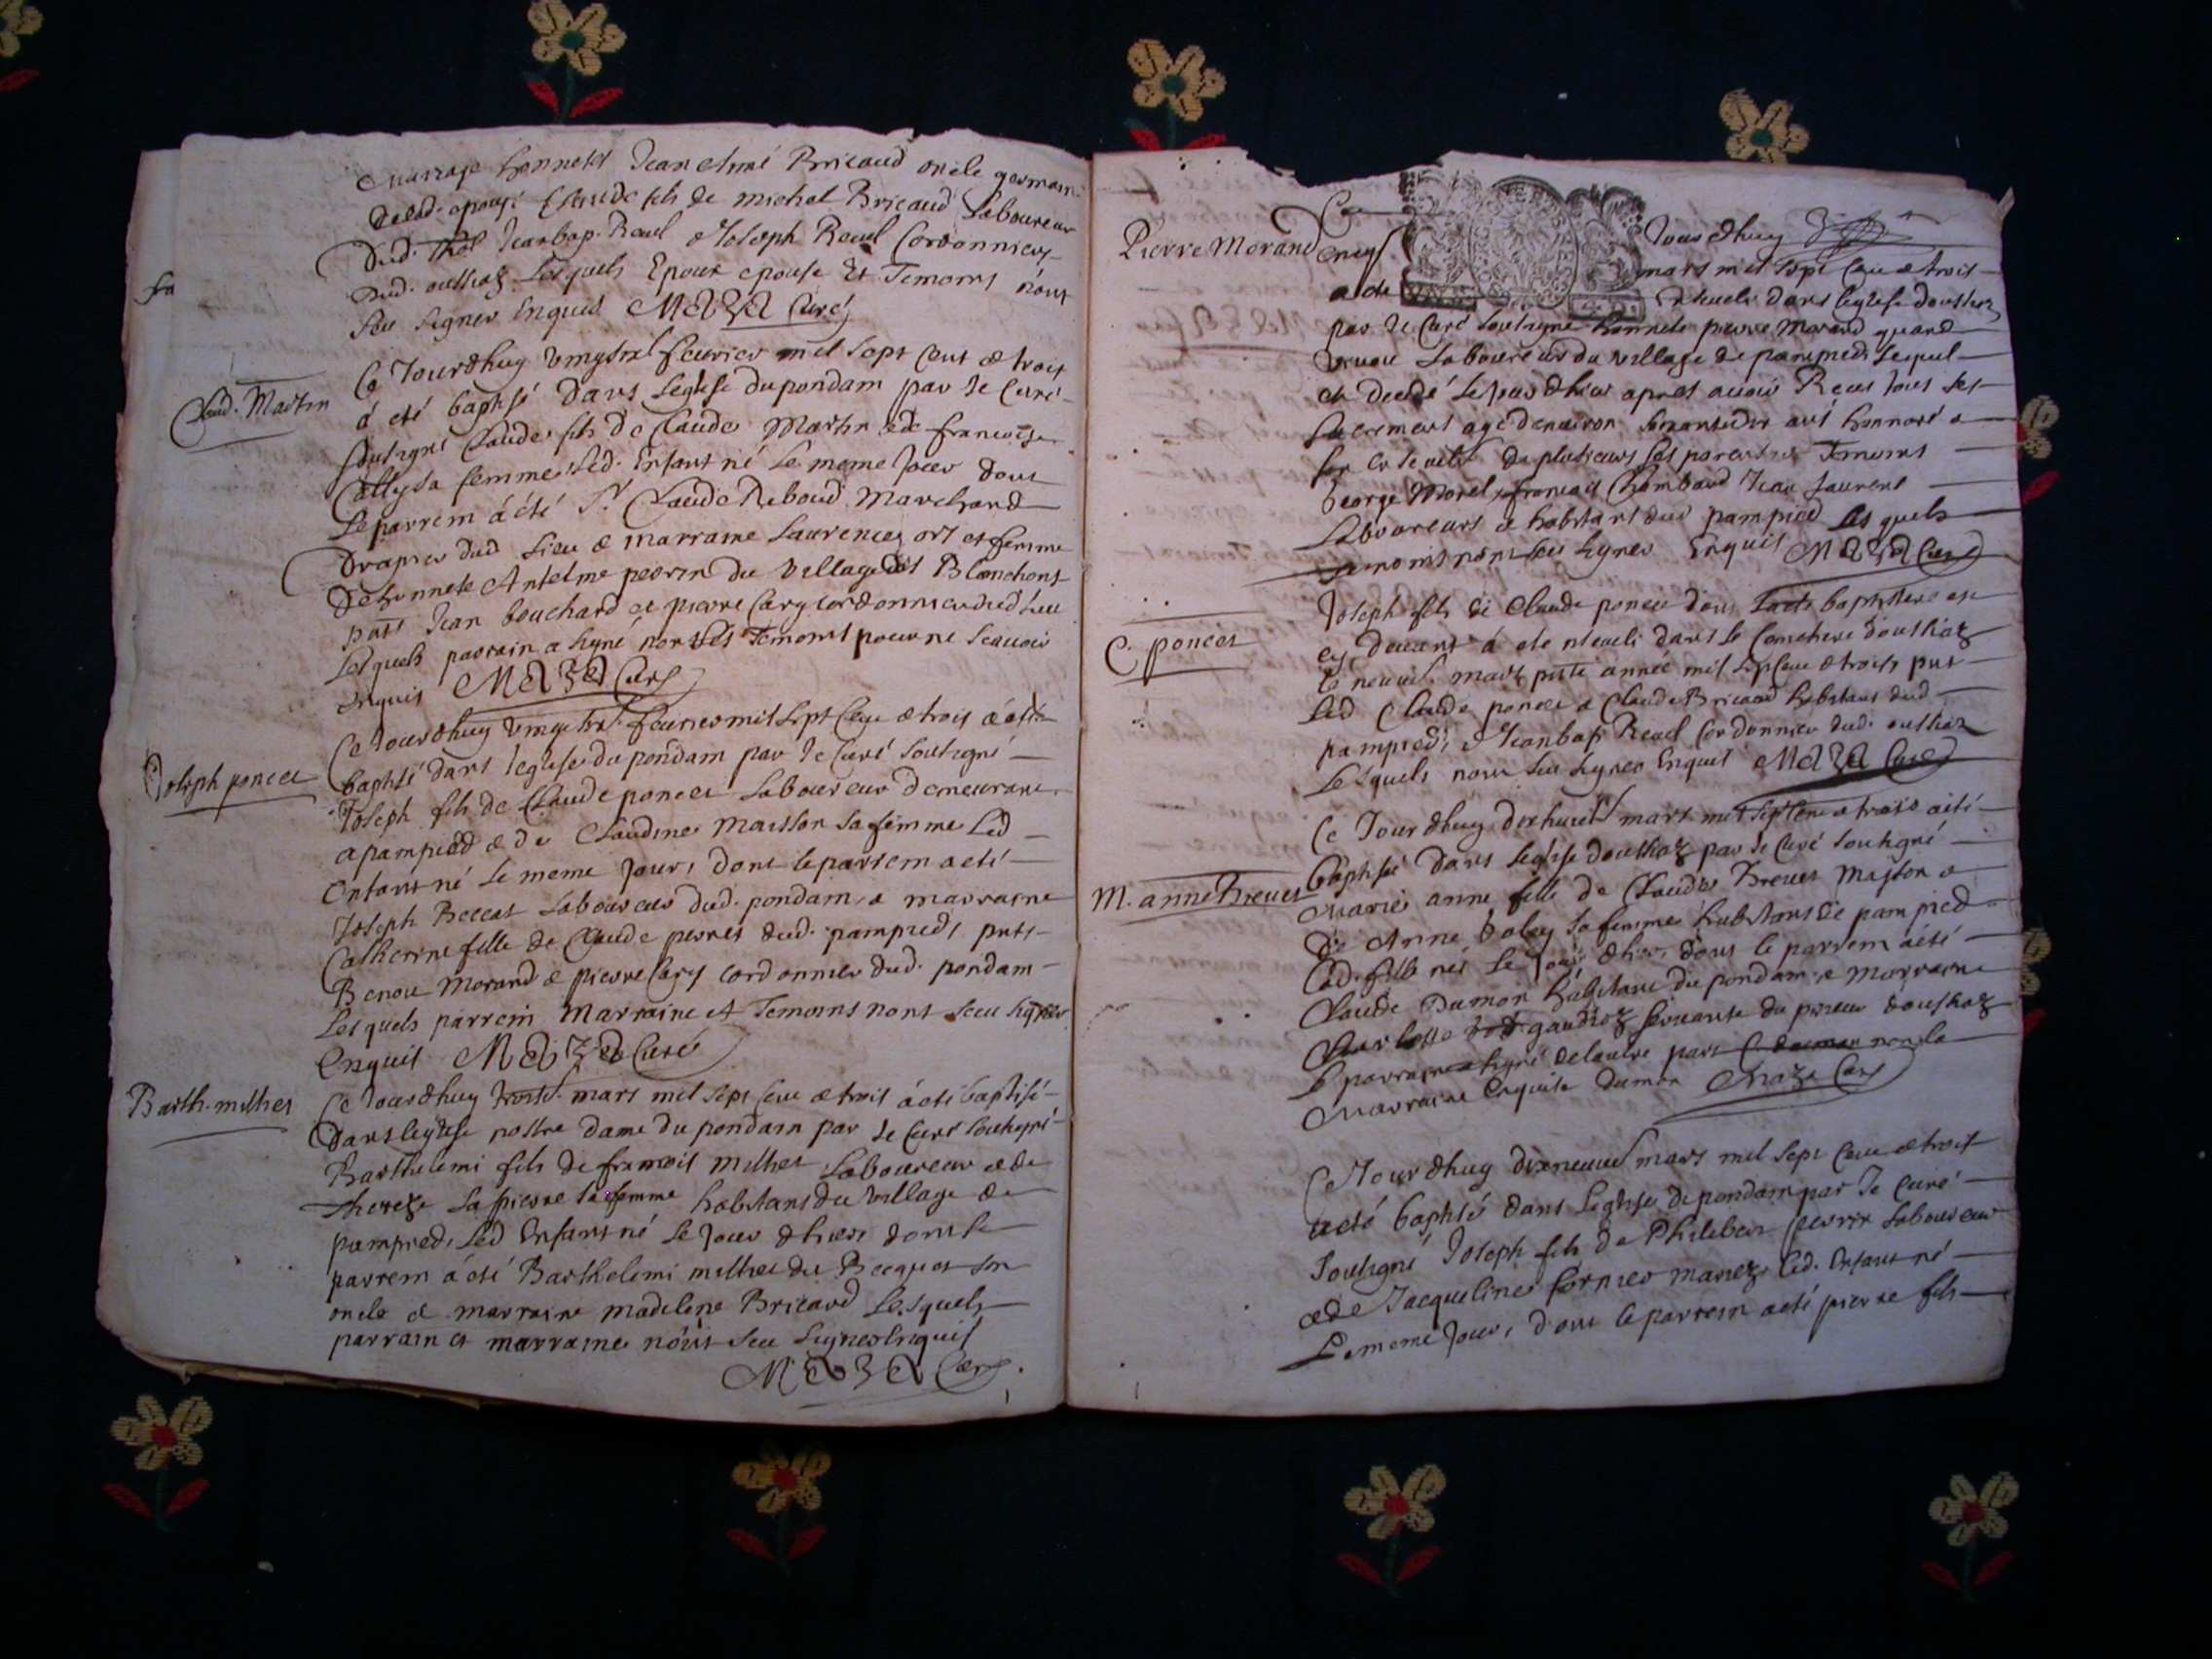 mariage honnetes Jean Aimé Bricaud oncle germain
delad. epouse Claude fils de michel Bricaud Laboureur
dud. Thol Jeanbap. Reuel & Joseph Reuel Cordonniers
dud. outriaz Lesquels Epoux epouse Et Temoins nont
sceu signer Enquis Maza Curé
Claud. Martin
Ce Jourdhuy vingt feurier mil sept cent & trois
á eté baptisé dans Leglise dupondain par Je Curé
soutsigné Claude fils de Claude Martin & de francoise
Collysa femme Led. Enfant né Le meme Jour dont
Le parrein á été Sr. Claude Reboud Marchand
Drapier dud Lieu & marraine Laurence femme
De honnete Antelme perrin du village des Blanchons
pnts Jean bouchard et pierre Cary cordonnier dud lieu
Lesquels parrain a signé non les Temoins pour ne scauoir
Enquis Maza Curé
Joseph poncet
Ce Jourdhuy feurier mil sept cent & trois á esté
baptisé dans l'eglise du pondain par Je Curé soutsigné
Joseph fils de Claude poncet Laboureur demeurant
apampied & de Claudine Maisson sa femme Led
Enfant né Le meme Jour, dont le parrein a eté
Joseph Beccat Laboureur dud. pondain & marraine
Catherine fille de Claude perret dud. pampied, pnts
Benoit Morand & pierre Cary cordonnier dud. pondain
Lesquels parrein Marraine et Temoins nont sceu signer
Enquis Maza Curé
Barth. milliet
Ce Jourdhuy mars mil sept cent & trois á eté baptisé
Dans leglise nostre dame du pondain par Je Curé soutsigné
Barthelemi fils de francois milliet Laboureur & de
thereze Lapierre sa femme habitans du village de
pampied, Led Enfant né Le Jour dhier dont le
parrein á eté Barthelemi milliet du Becquet son
oncle & marraine madelene Bricaud Lesquels
parrain et marraine nont sceu signer Enquis
Maza Curé
Pierre Morand
Ce Jourdhuy
mars mil sept cent & trois
a ete dans leglise doutriaz
par Je Curé soutsigné honnete pierre Morand quand
viuou Laboureur du village de pampied Lequel
est decedé Le Jour dhier apres auoir Receu tous ses
sacrement agé denuiron ans honnoré a
son de plusieurs ses parents Temoins
George Morel, francois Chambaud Jean Laurent
Laboureurs & habitans dud pampied Lesquels
Temoins nont sceu signer Enquis Maza Curé
C. poncet
Joseph fils de Claude poncet dont Lacte baptistere est
cy deuant á ete enseueli dans le Cemetiere doutriaz
le neuuie. mars pnte année mil sept cent & trois pnt
Led Claude poncet & Claude Bricaud habitans dud
pampied, & Jeanbap Reuel Cordonnier dud. outriaz
Lesquels nont sceu signer Enquis Maza Curé
M. anne Breuet
Ce Jourdhuy dixhuit mars mil sept cent & trois a eté
baptisée dans Leglise doutriaz par Je Curé soutsigné
Marie anne fille de Claude Breuet Masson &
de Anne sa femme habitans de pampied
Lad. fille née Le Jour dhier, dont le parrein á été
Claude Dumon habitant du pondain & Marraine
Charlotte gaudioz seruante du prieur doutriaz
Le parrain a signé de lautre part non la
Marraine Enquise dumon Maza Curé
Ce Jourdhuy dixneuuie mars mil sept cent & trois
a eté baptisé dans Leglise de pondain par Je Curé
soutsigné Joseph fils de Philebert perrin Laboureur
& de Jacqueline Cornier mariez Led. Enfant né
Le meme Jour, dont le parrein a eté pierre fils